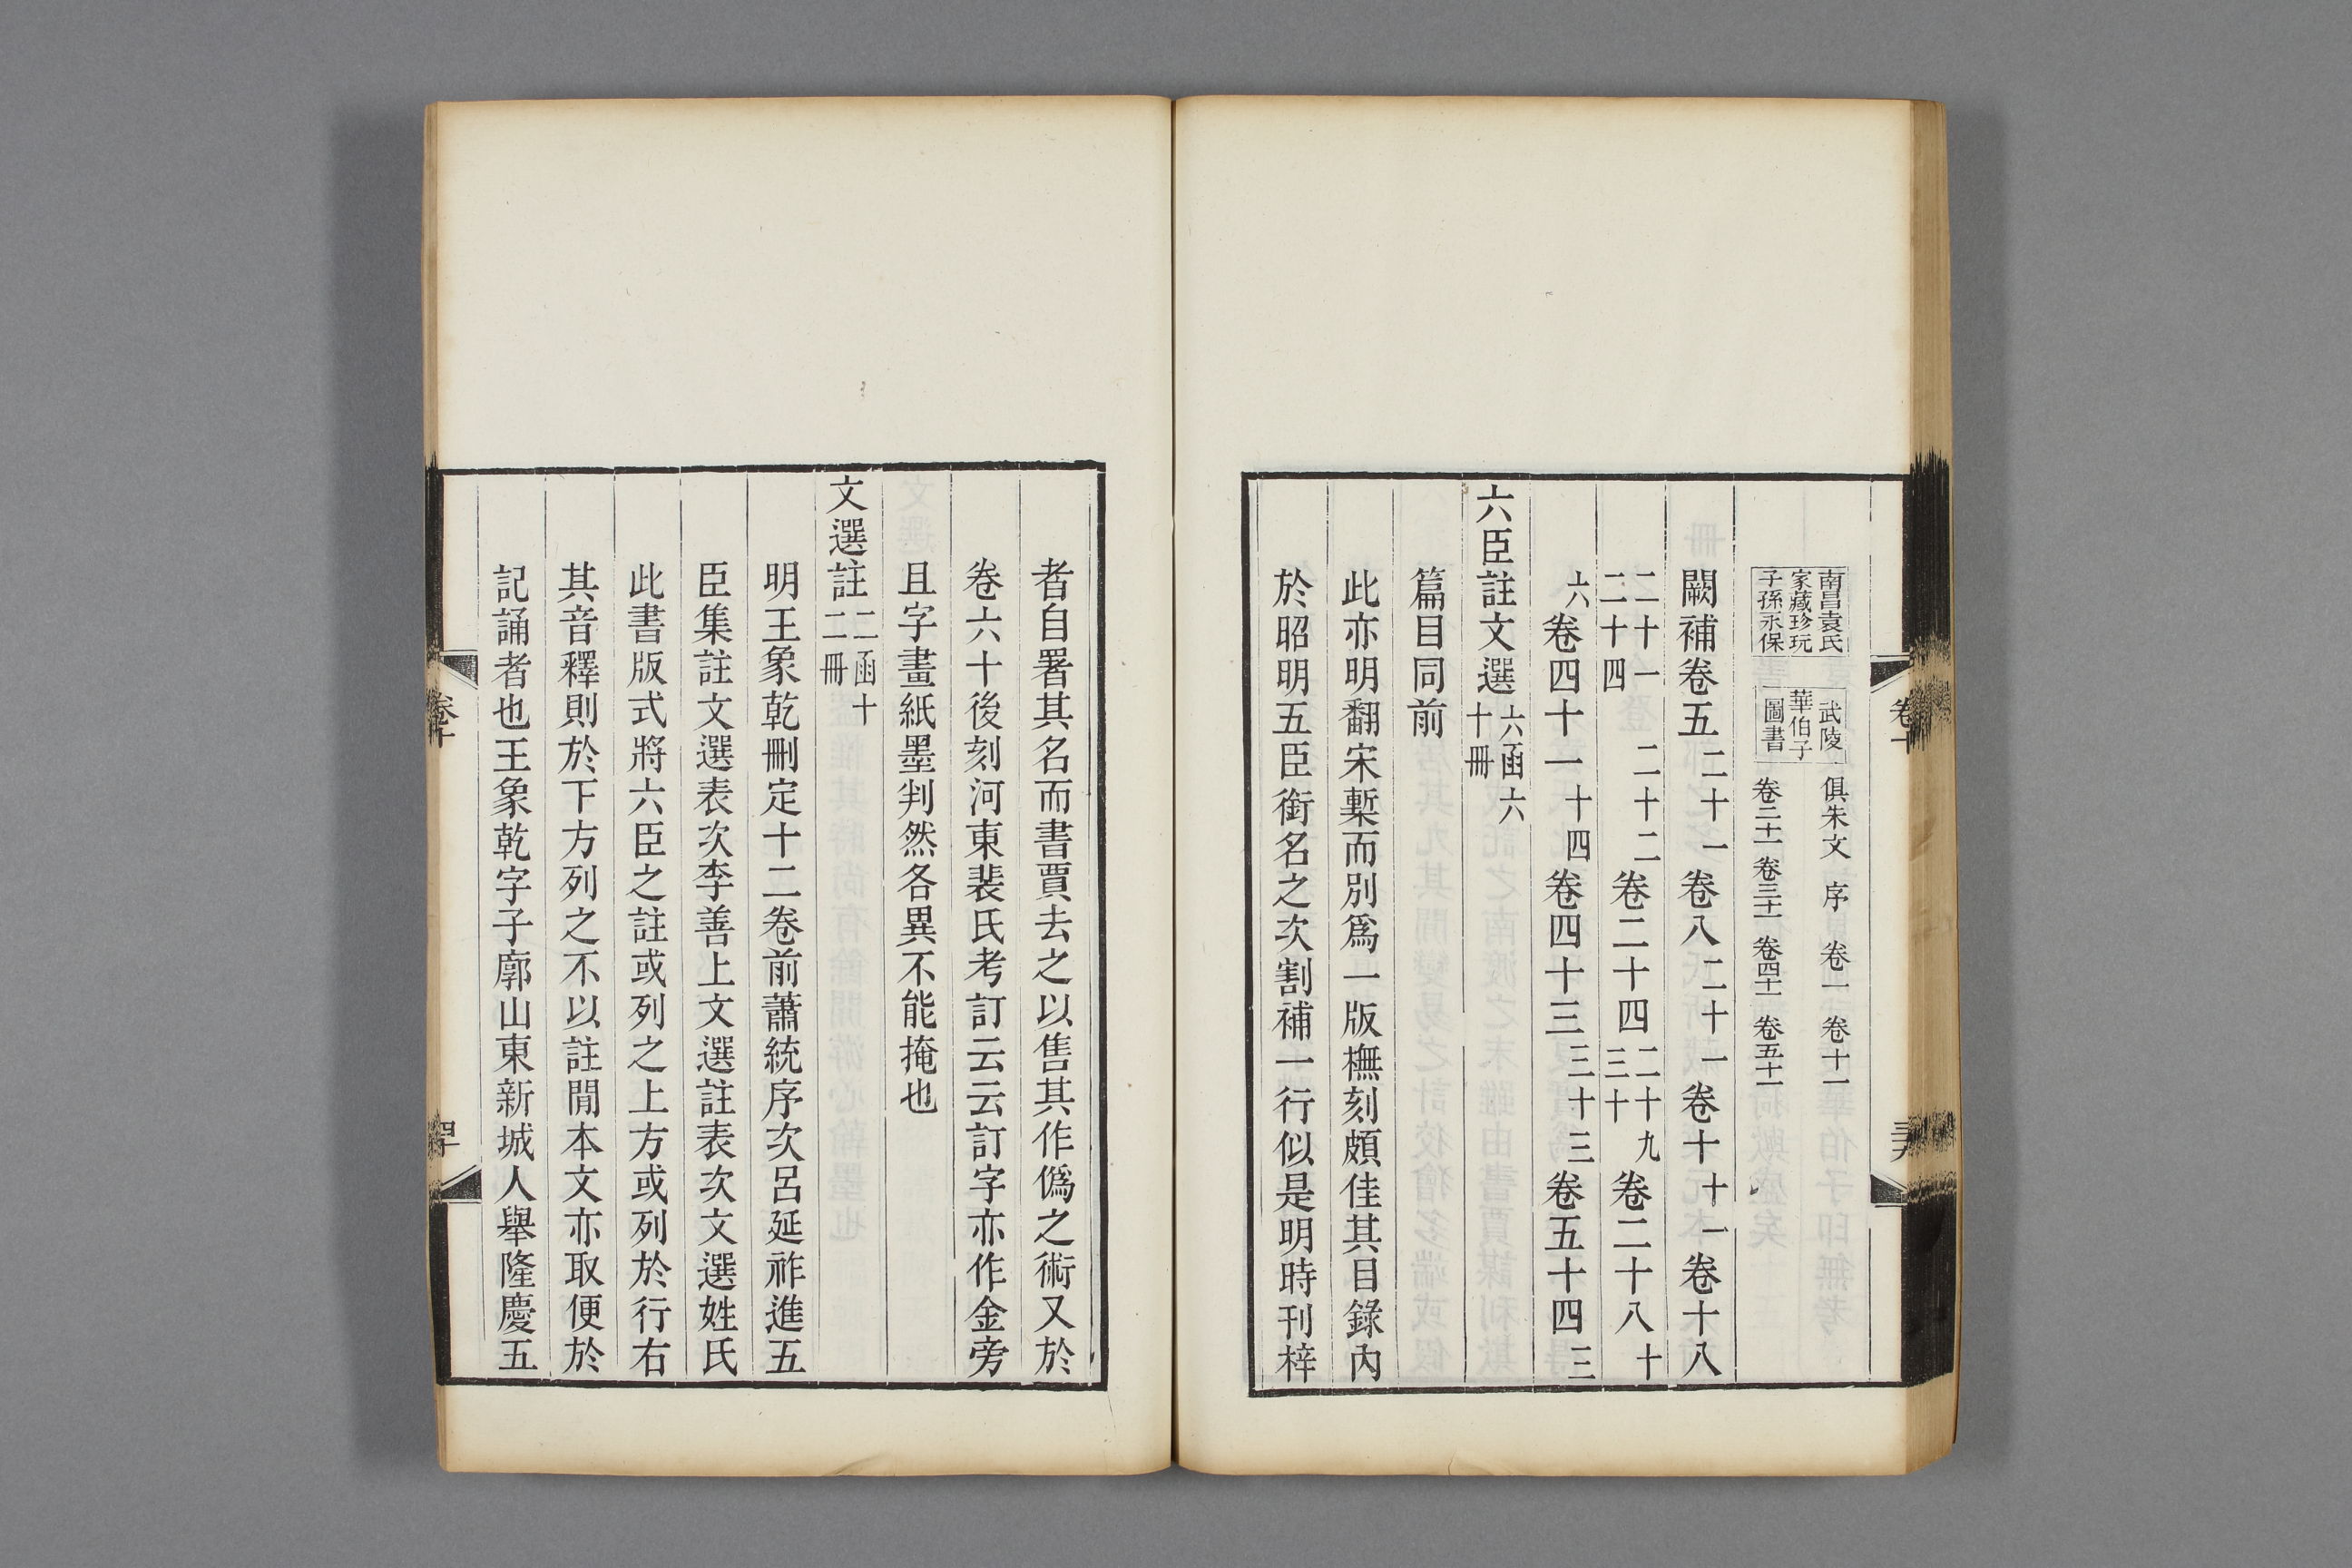 南昌袁氏
家藏珍玩
子孫永保
武陵
華伯子
圖書
俱朱文 序 卷一 卷十一
卷二十一 卷三十一 卷四十一 卷五十一
闕補卷五二十一卷八二十一卷十十一卷十八
二十一二十四二十二卷二十四二十九三十卷二十八十
六卷四十一十四卷四十三三十三卷五十四三
六臣註文選六函六十冊
篇目同前
此亦明翻宋槧而別爲一版橅刻頗佳其目錄內
於昭明五臣銜名之次割補一行似是明時刊梓
者自署其名而書賈去之以售其作僞之術又於
卷六十後刻河東裴氏考訂云云訂字亦作金旁
且字畫紙墨判然各異不能掩也
文選註二函十二冊
明王象乾刪定十二卷前蕭統序次呂延祚進五
臣集註文選表次李善上文選註表次文選姓氏
此書版式將六臣之註或列之上方或列於行右
其音釋則於下方列之不以註閒本文亦取便於
記誦者也王象乾字子廓山東新城人舉隆慶五
卷十